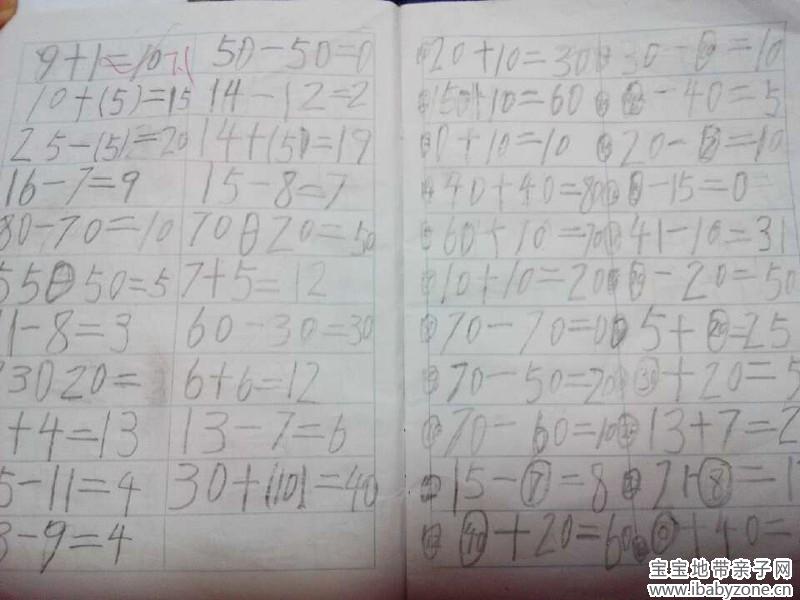 9+1=10
50-50=0
10+(5)=15
14-12=2
25-(5)=20
14+(5)=19
16-7=9
15-8=7
80-70=10
70⊖20=50
55⊖50=5
7+5=12
1-8=3
60-30=30
20=
6+6=12
+4=13
13-7=6
5-11=4
30+(10)=40
3-9=4
20+10=30
=10
50+10=60
-40=5
0+10=10
20- =10
40+40=80
-15=0
60+10=70
41-10=31
10+10=20
-20=50
70-70=0
5+(20)=25
70-50=20
(30)+20=5
70-60=10
13+7=2
15-(7)=8
(8)=1
(40)+20=60
+40=
宝宝地带亲子网
www.ibabyzone.cn